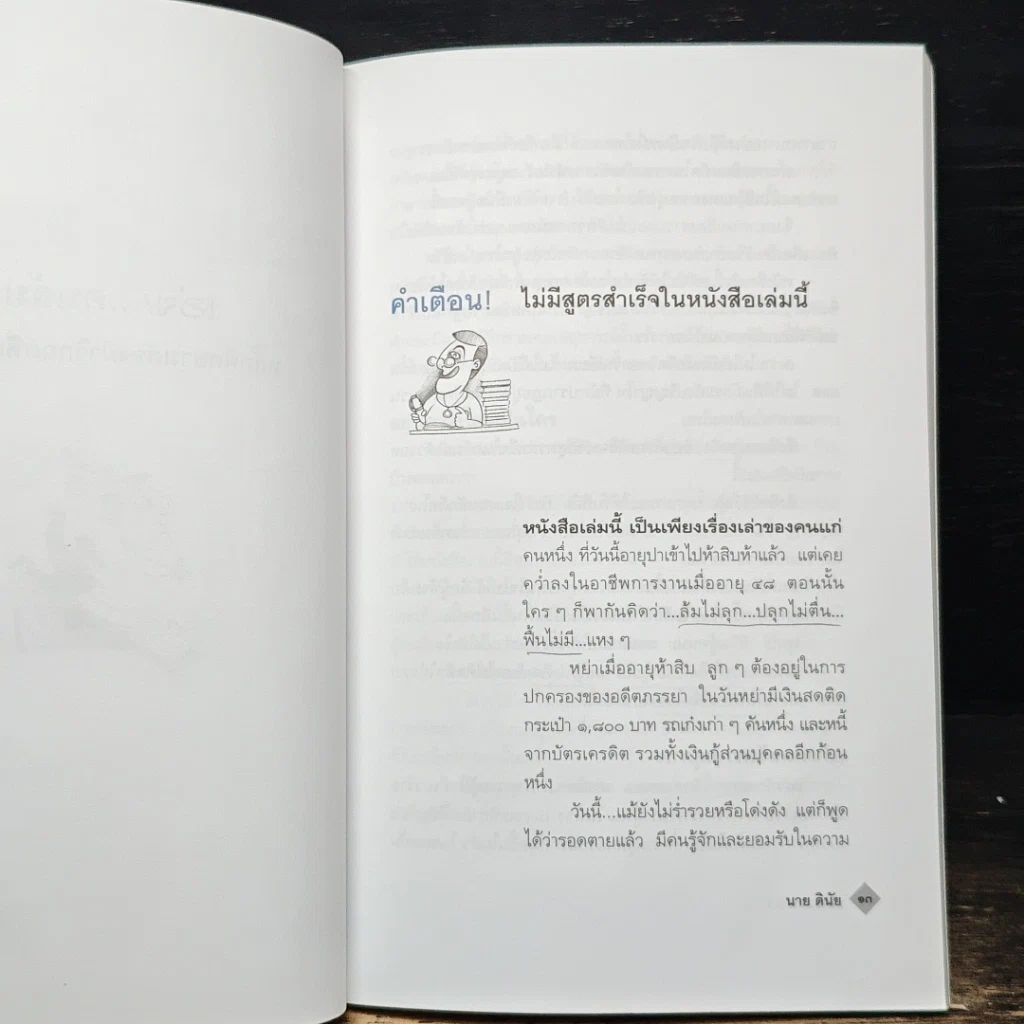 คำเตือน! ไม่มีสูตรสำเร็จในหนังสือเล่มนี้
หนังสือเล่มนี้ เป็นเพียงเรื่องเล่าของคนแก่
คนหนึ่ง ที่วันนี้อายุปาเข้าไปห้าสิบห้าแล้ว แต่เคย
คว่ำลงในอาชีพการงานเมื่ออายุ ๔๘ ตอนนั้น
ใคร ๆ ก็พากันคิดว่า...ล้มไม่ลุก...ปลุกไม่ตื่น...
ฟื้นไม่มี...แหง ๆ
หย่าเมื่ออายุห้าสิบ ลูก ๆ ต้องอยู่ในการ
ปกครองของอดีตภรรยา ในวันหย่ามีเงินสดติด
กระเป๋า ๑,๘๐๐ บาท รถเก๋งเก่า ๆ คันหนึ่ง และหนี้
จากบัตรเครดิต รวมทั้งเงินกู้ส่วนบุคคลอีกก้อน
หนึ่ง
วันนี้...แม้ยังไม่ร่ำรวยหรือโด่งดัง แต่ก็พูด
ได้ว่ารอดตายแล้ว มีคนรู้จักและยอมรับในความ
นาย ดินัย ๑๓